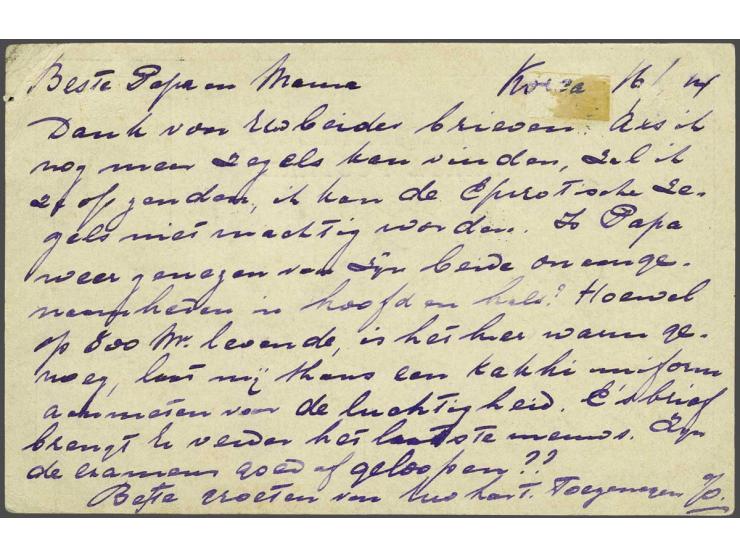 Beste Papa en Mama Korça 16/ 14
Dank voor Uw beider brieven. Als ik
nog meer zegels kan vinden, zal ik
ze of zenden, ik kan de Epirotische Ze-
gels niet machtig worden. Is Papa
weer genezen van zijn beide onaange-
naamheden in hoofd en hals? Hoewel
op 800 M. levende, is het hier warm ge-
noeg, laat mij thans een kakki uniform
aanmeten voor de luchtigheid. E's brief
brengt U verder het laatste nieuws. Zijn
de examens goed afgeloopen??
Beste groeten van Uw hart. Toegenegen